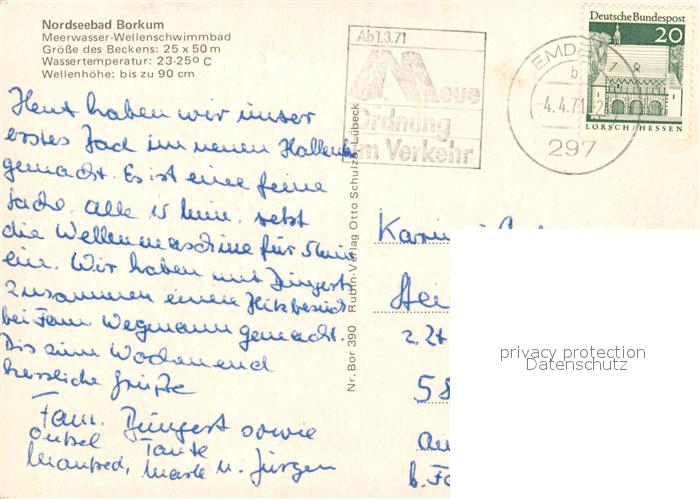 Nordseebad Borkum
Meerwasser-Wellenschwimmbad
Größe des Beckens: 25 x 50 m
Wassertemperatur: 23-25° C
Wellenhöhe: bis zu 90 cm
Ab 1.3.71
Neue
Ordnung
im Verkehr
EMDEN
b
-4.4.71
297
Deutsche Bundespost
20
LORSCH/HESSEN
Heut haben wir unser
erstes Bad im neuen Hallenb
gemacht. Es ist eine feine
Sache. Alle 15 Min. setzt
die Wellenmaschine für 5 Min
ein. Wir haben mit Büngerts
zusammen einen Blitzbesuch
bei Fam. Wegmann gemacht.
Bis zum Wochenend
herzliche Grüße
Fam. Büngert sowie
Onkel Tante
Manfred, u. Jürgen
Nr. Bor 390 Rubin-Verlag Otto Schulze, Lübeck
Karin
Hei
z. Zt
58
b. Fa
privacy protection
Datenschutz